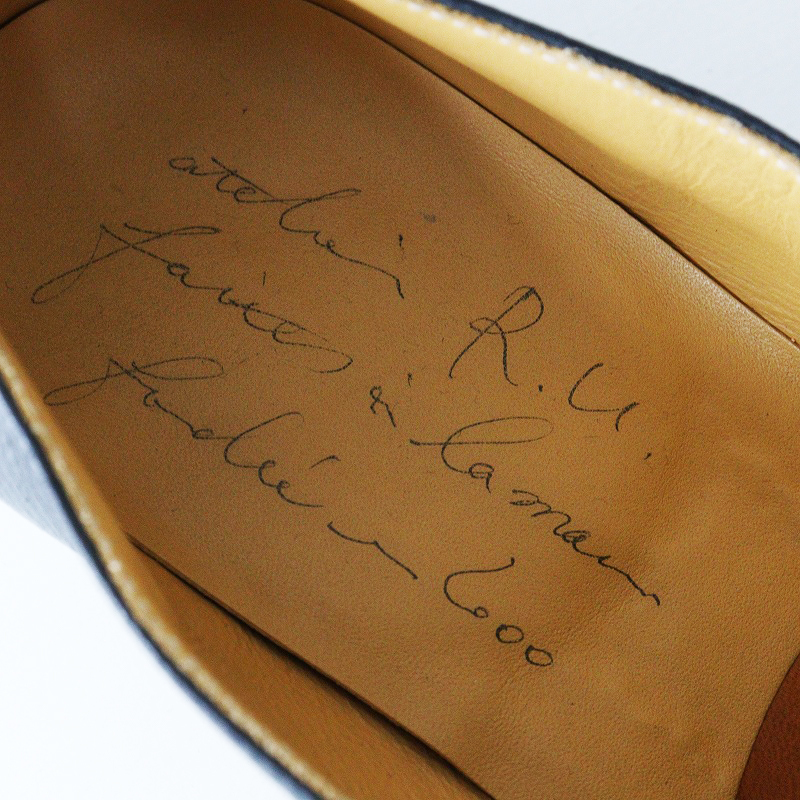 atelier R.U.
Faites à la main
Fondée en 600